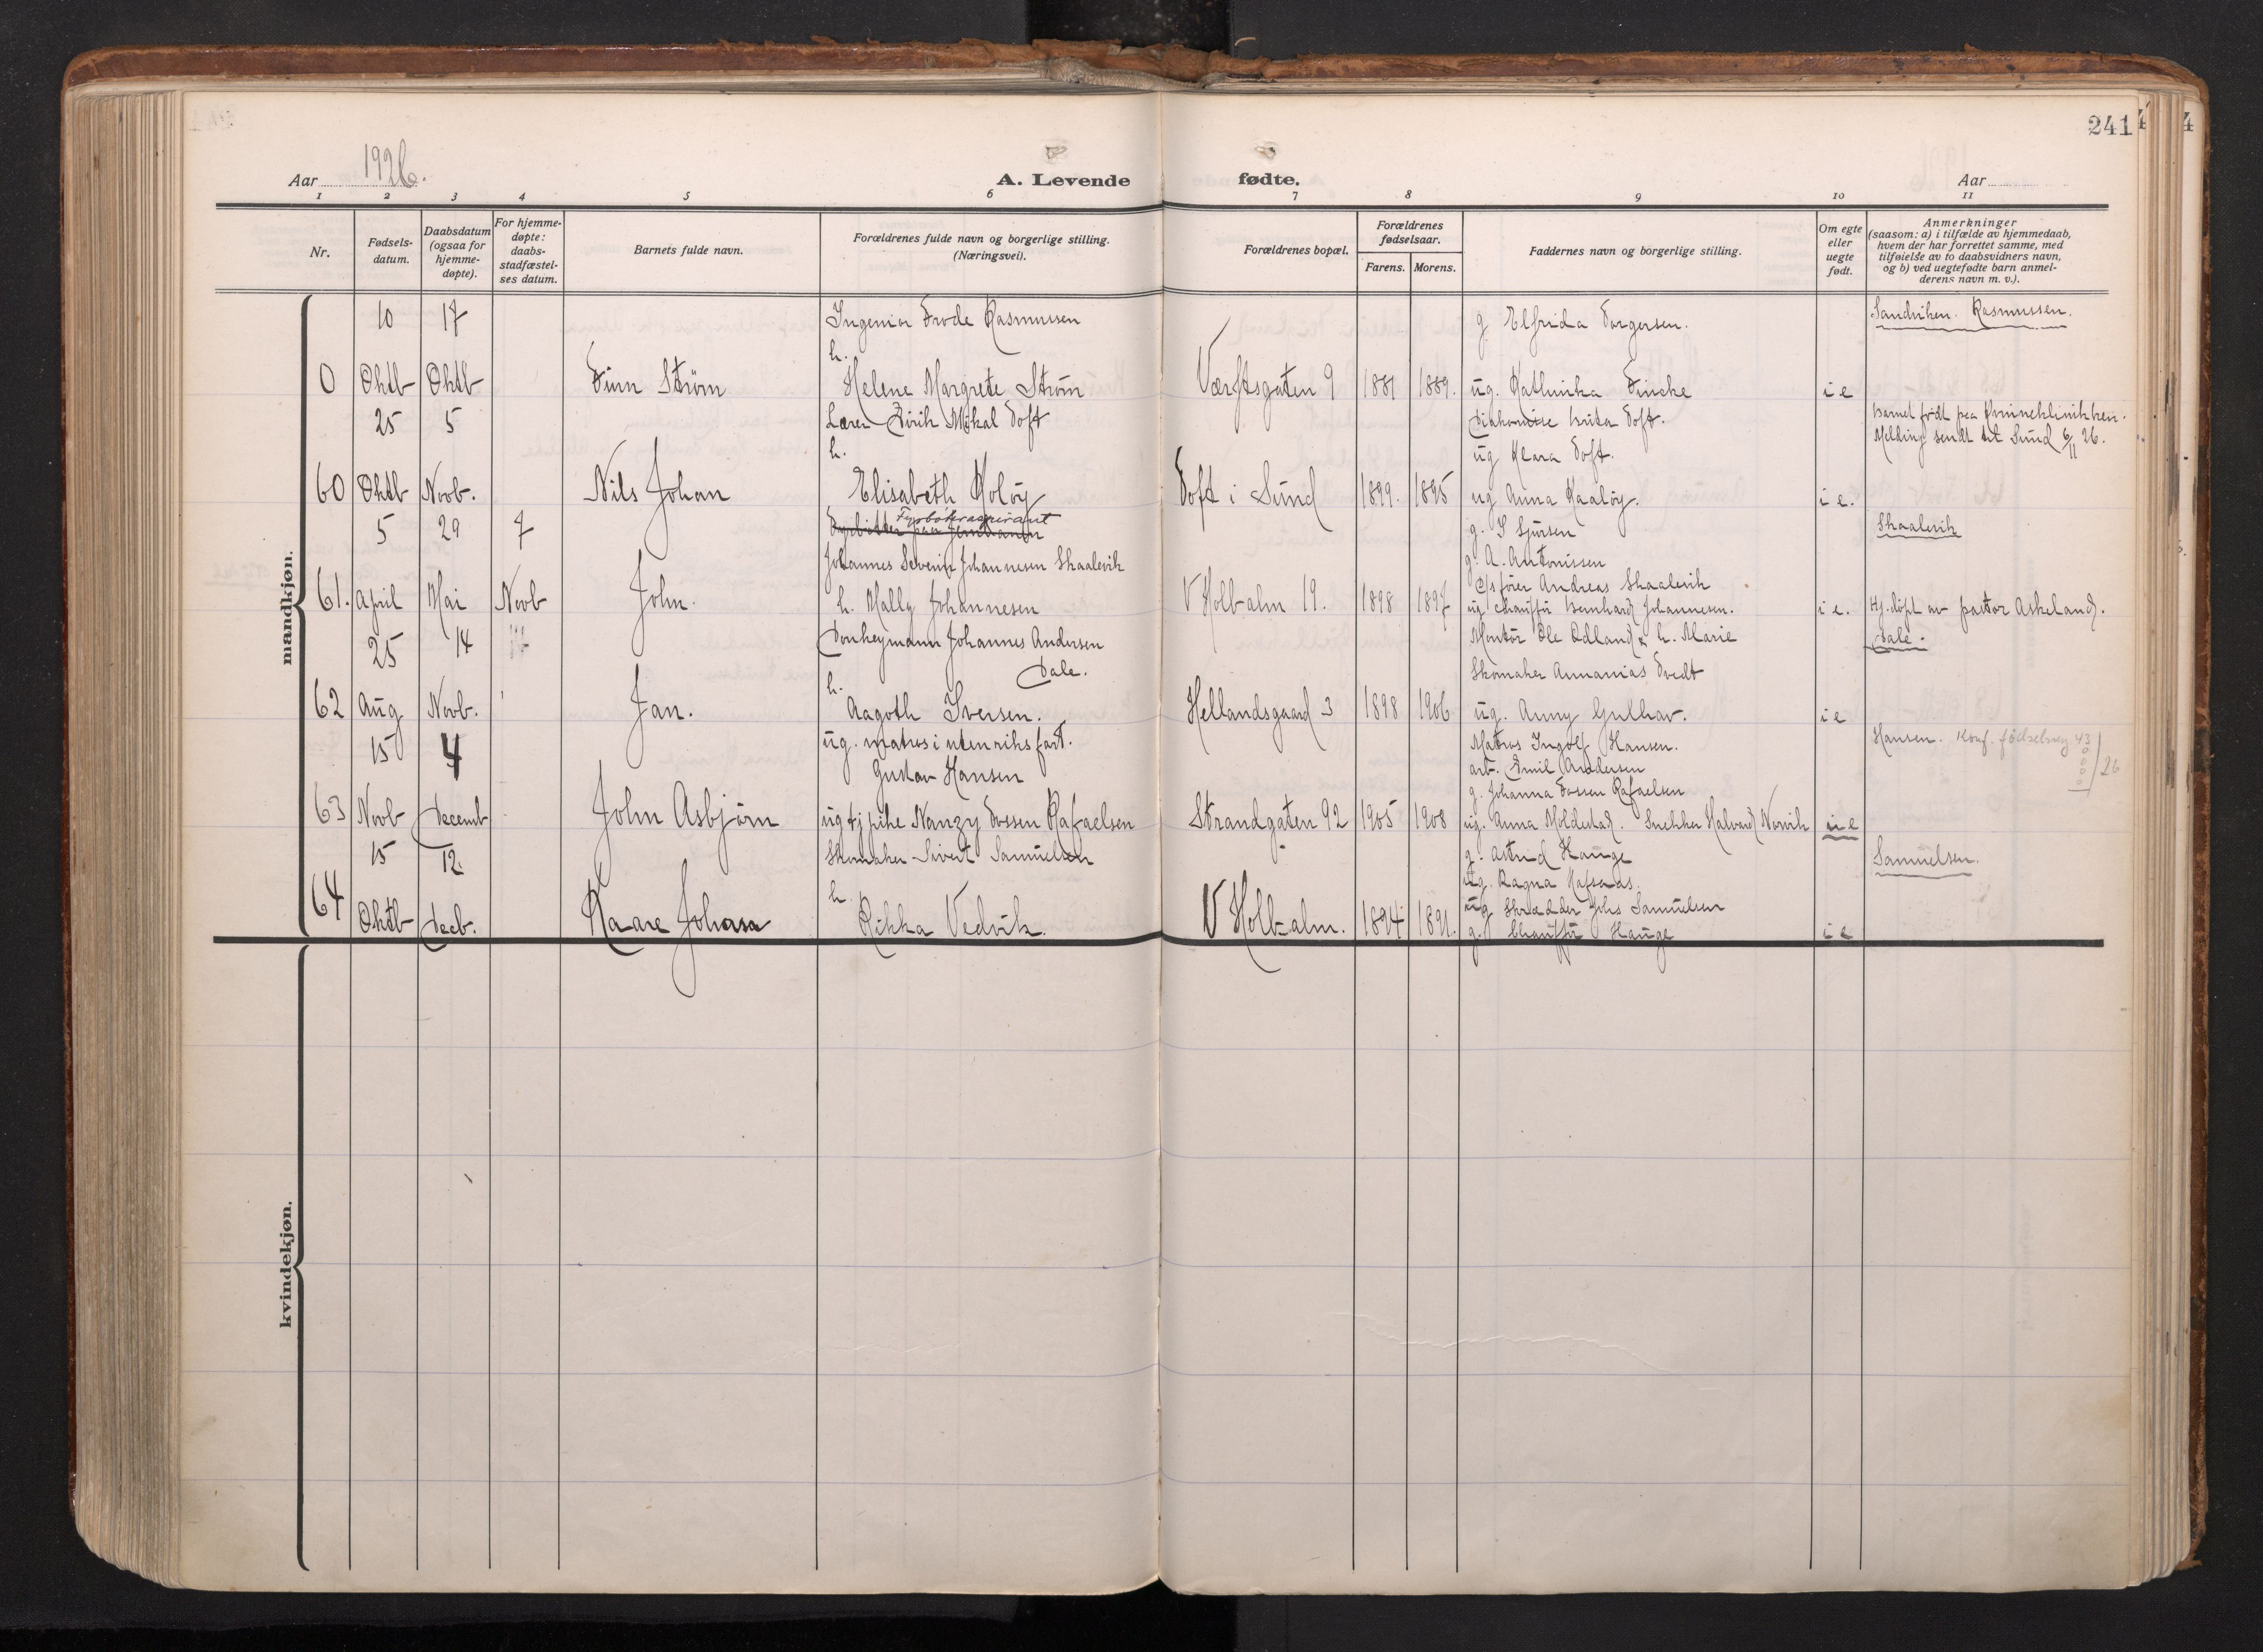 241
Aar 1926.
A. Levende fødte.
Aar
1 2 3 4 5 6 7 8 9 10 11
Nr.
Fødsels-
datum.
Daabsdatum
(ogsaa for
hjemme-
døpte).
For hjemme-
døpte:
daabs-
stadfæstel-
ses datum.
Barnets fulde navn.
Forældrenes fulde navn og borgerlige stilling.
(Næringsvei).
Forældrenes bopæl.
Forældrenes
fødselsaar.
Farens. Morens.
Faddernes navn og borgerlige stilling.
Om egte
eller
uegte
født.
Anmerkninger
(saasom: a) i tilfælde av hjemmedaab,
hvem der har forrettet samme, med
tilføielse av to daabsvidners navn,
og b) ved uegtefødte barn anmel-
derens navn m. v.).
mandkjøn.
10 17 Ingeniør Frode Rasmussen g. Elfrida Torgersen. Sandviken. Rasmussen.
h.
0 Oktb Oktb Finn Strøm Helene Margrete Strøm Værftsgaten 9 1881 1889. ug. Kathinka Fincke i e
25 5 Lærer Eirik Mikal Toft Diakonisse Brita Toft. Barnet født paa Kvindeklinikken.
h. ug Klara Toft. Melding sendt til Sund 6/11 26.
60 Oktb Novb. Nils Johan Elisabeth Koløy Toft i Sund 1899. 1895 ug Anna Kaaløy. i e.
5 29 7 Fyrbøteraspirant g. S Sjursen Skaalevik
Johannes Severin Johannesen Skaalevik g. A. Antonissen
61. April Mai Novb John. h. Mally Johannesen V Holb-alm 19. 1898 1897 Andreas Skaalevik i e. Hj. døpt av pastor Askeland.
ug. chauffør Bernhard Johannesen.
25 14 Donkeymann Johannes Andersen Montør Ole Odland & h. Marie Dale.
Dale. Skomaker Annanias Tvedt
h.
62 Aug Novb. Jan. Aagoth Iversen. Hellandsgaard 3 1898 1906 ug. Anny Gulhav. i e
15 4 ug. matros i utenriksfart. Matros Ingolf Hansen. Hansen. Konf. fødselsreg 43 / 26
Gustav Hansen arb. Emil Andersen
g. Johanna Fossen Rafaelsen
63 Novb Decemb John Asbjørn ug tj pike Nanzy Fossen Rafaelsen Strandgaten 92 1905 1908 ug. Anna Moldestad. Snekker Halvard Norvik u e
15 12 Skomaker Sivert Samuelsen g. Astrid Hauge Samuelsen.
ug. Ragna
h. ug Skrædder Johs Samuelsen
64 Oktb Decb. Kaare Johan Rikka Vedvik. V Holb-alm. 1894 1891. g. Chauffør Hauge i e
kvindekjøn.